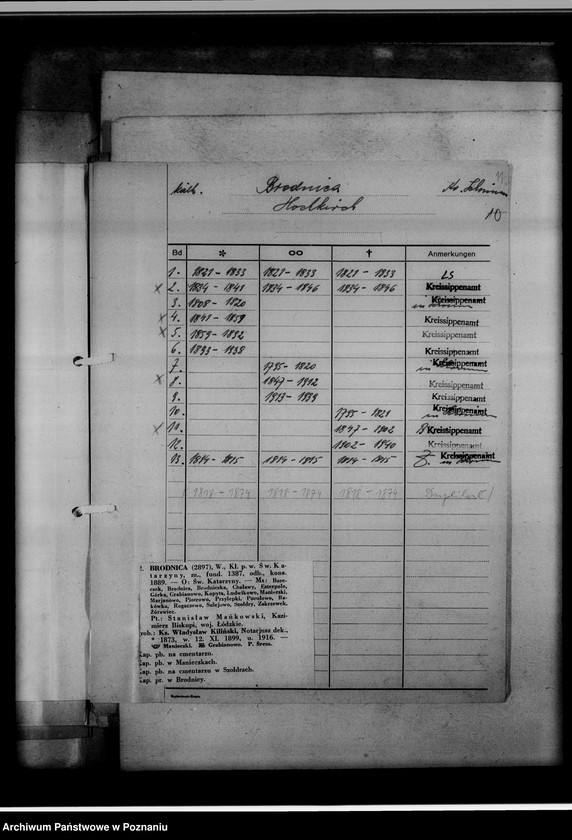 kath. Brodnica Kr. Schrimm
Hochkirch 10
Bd * ∞ † Anmerkungen
1. 1821 - 1833 1821 - 1833 1821 - 1833 LS
x 2. 1834 - 1841 1834 - 1846 1834 - 1846 Kreissippenamt
3. 1808 - 1820 Kreissippenamt
x 4. 1841 - 1859 Kreissippenamt
x 5. 1859 - 1892 Kreissippenamt
6. 1893 - 1938 Kreissippenamt
7. 1795 - 1820 Kreissippenamt
x 8. 1847 - 1912 Kreissippenamt
9. 1913 - 1939 Kreissippenamt
10. 1795 - 1821 Kreissippenamt
x 11. 1847 - 1902 Kreissippenamt
12. 1902 - 1940 Kreissippenamt
13. 1814 - 1815 1814 - 1815 1814 - 1815 Kreissippenamt
1818 - 1874 1818 - 1874 1818 - 1874 Duplikat
BRODNICA (2897), W., Kł. p. w. Św. Ka-
tarzyny, m., fund. 1387, odb., kons.
1889. — O: Św. Katarzyny. — Ms:
czak, Brodnica, Brodniczka, Chaławy, Esterpole,
Górka, Grabianowo, Kopyta, Ludwikowo, Manieczki,
Marjanowo, Piotrowo, Przylepki, Psarskie,
Rogaczewo, Sulejewo, Szołdry, Zakrzewek,
Żórawiec.
Pt.: Stanisław Mańkowski, Kazi-
mierz Biskupi, woj. Łódzkie.
Prob.: Ks. Władysław Kiliński, Notarjusz dek.,
* 1873, w. 12. XI. 1899, u. 1916. —
Manieczki. Grabianowo. P. Śrem.
Kap. pb. na cmentarzu.
Kap. pb. w Manieczkach.
Kap. pb. na cmentarzu w Szołdrach.
Kap. pr. w Brodnicy.
Archiwum Państwowe w Poznaniu